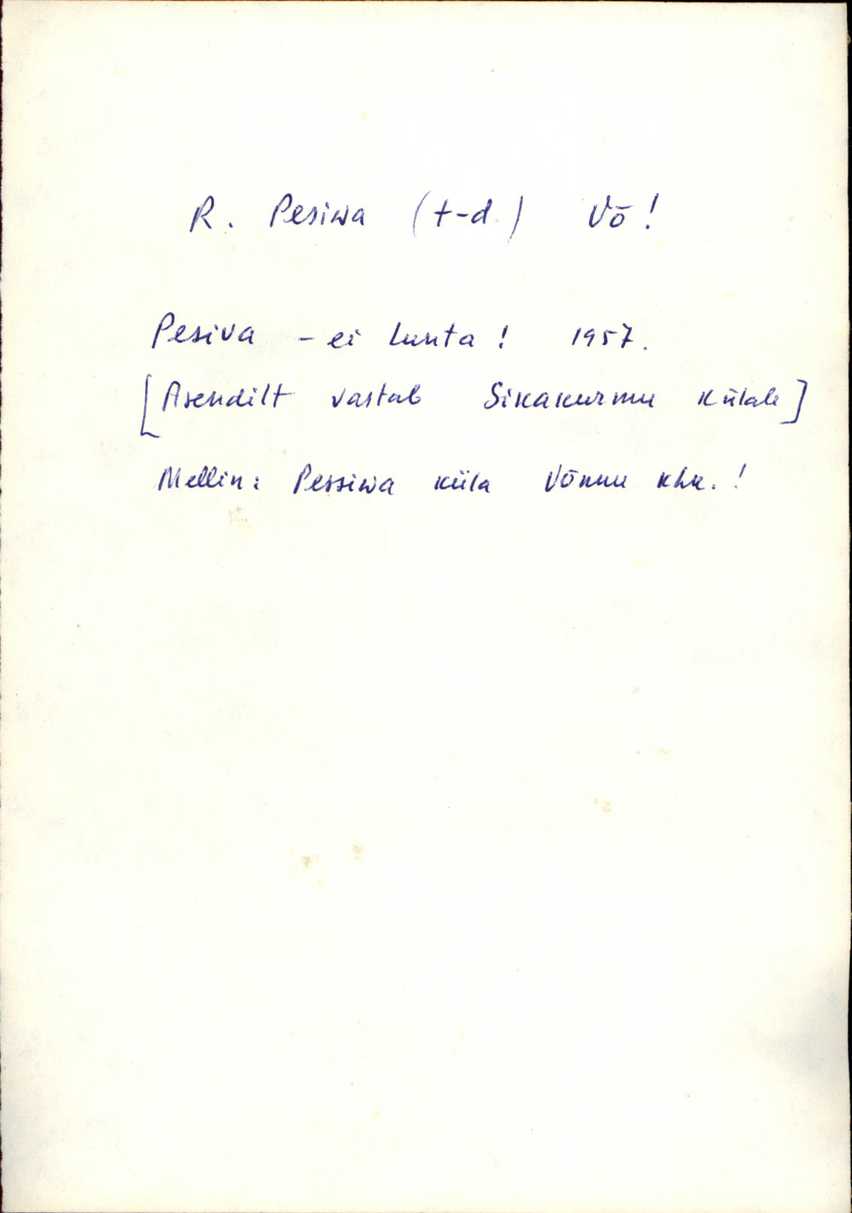 R. Pesiwa (t-d) Võ!
Pesiva - ei tunta! 1957.
[Asendilt vastab Sikakurmu külale]
Mellin: Pessiwa küla Võnnu khk.!